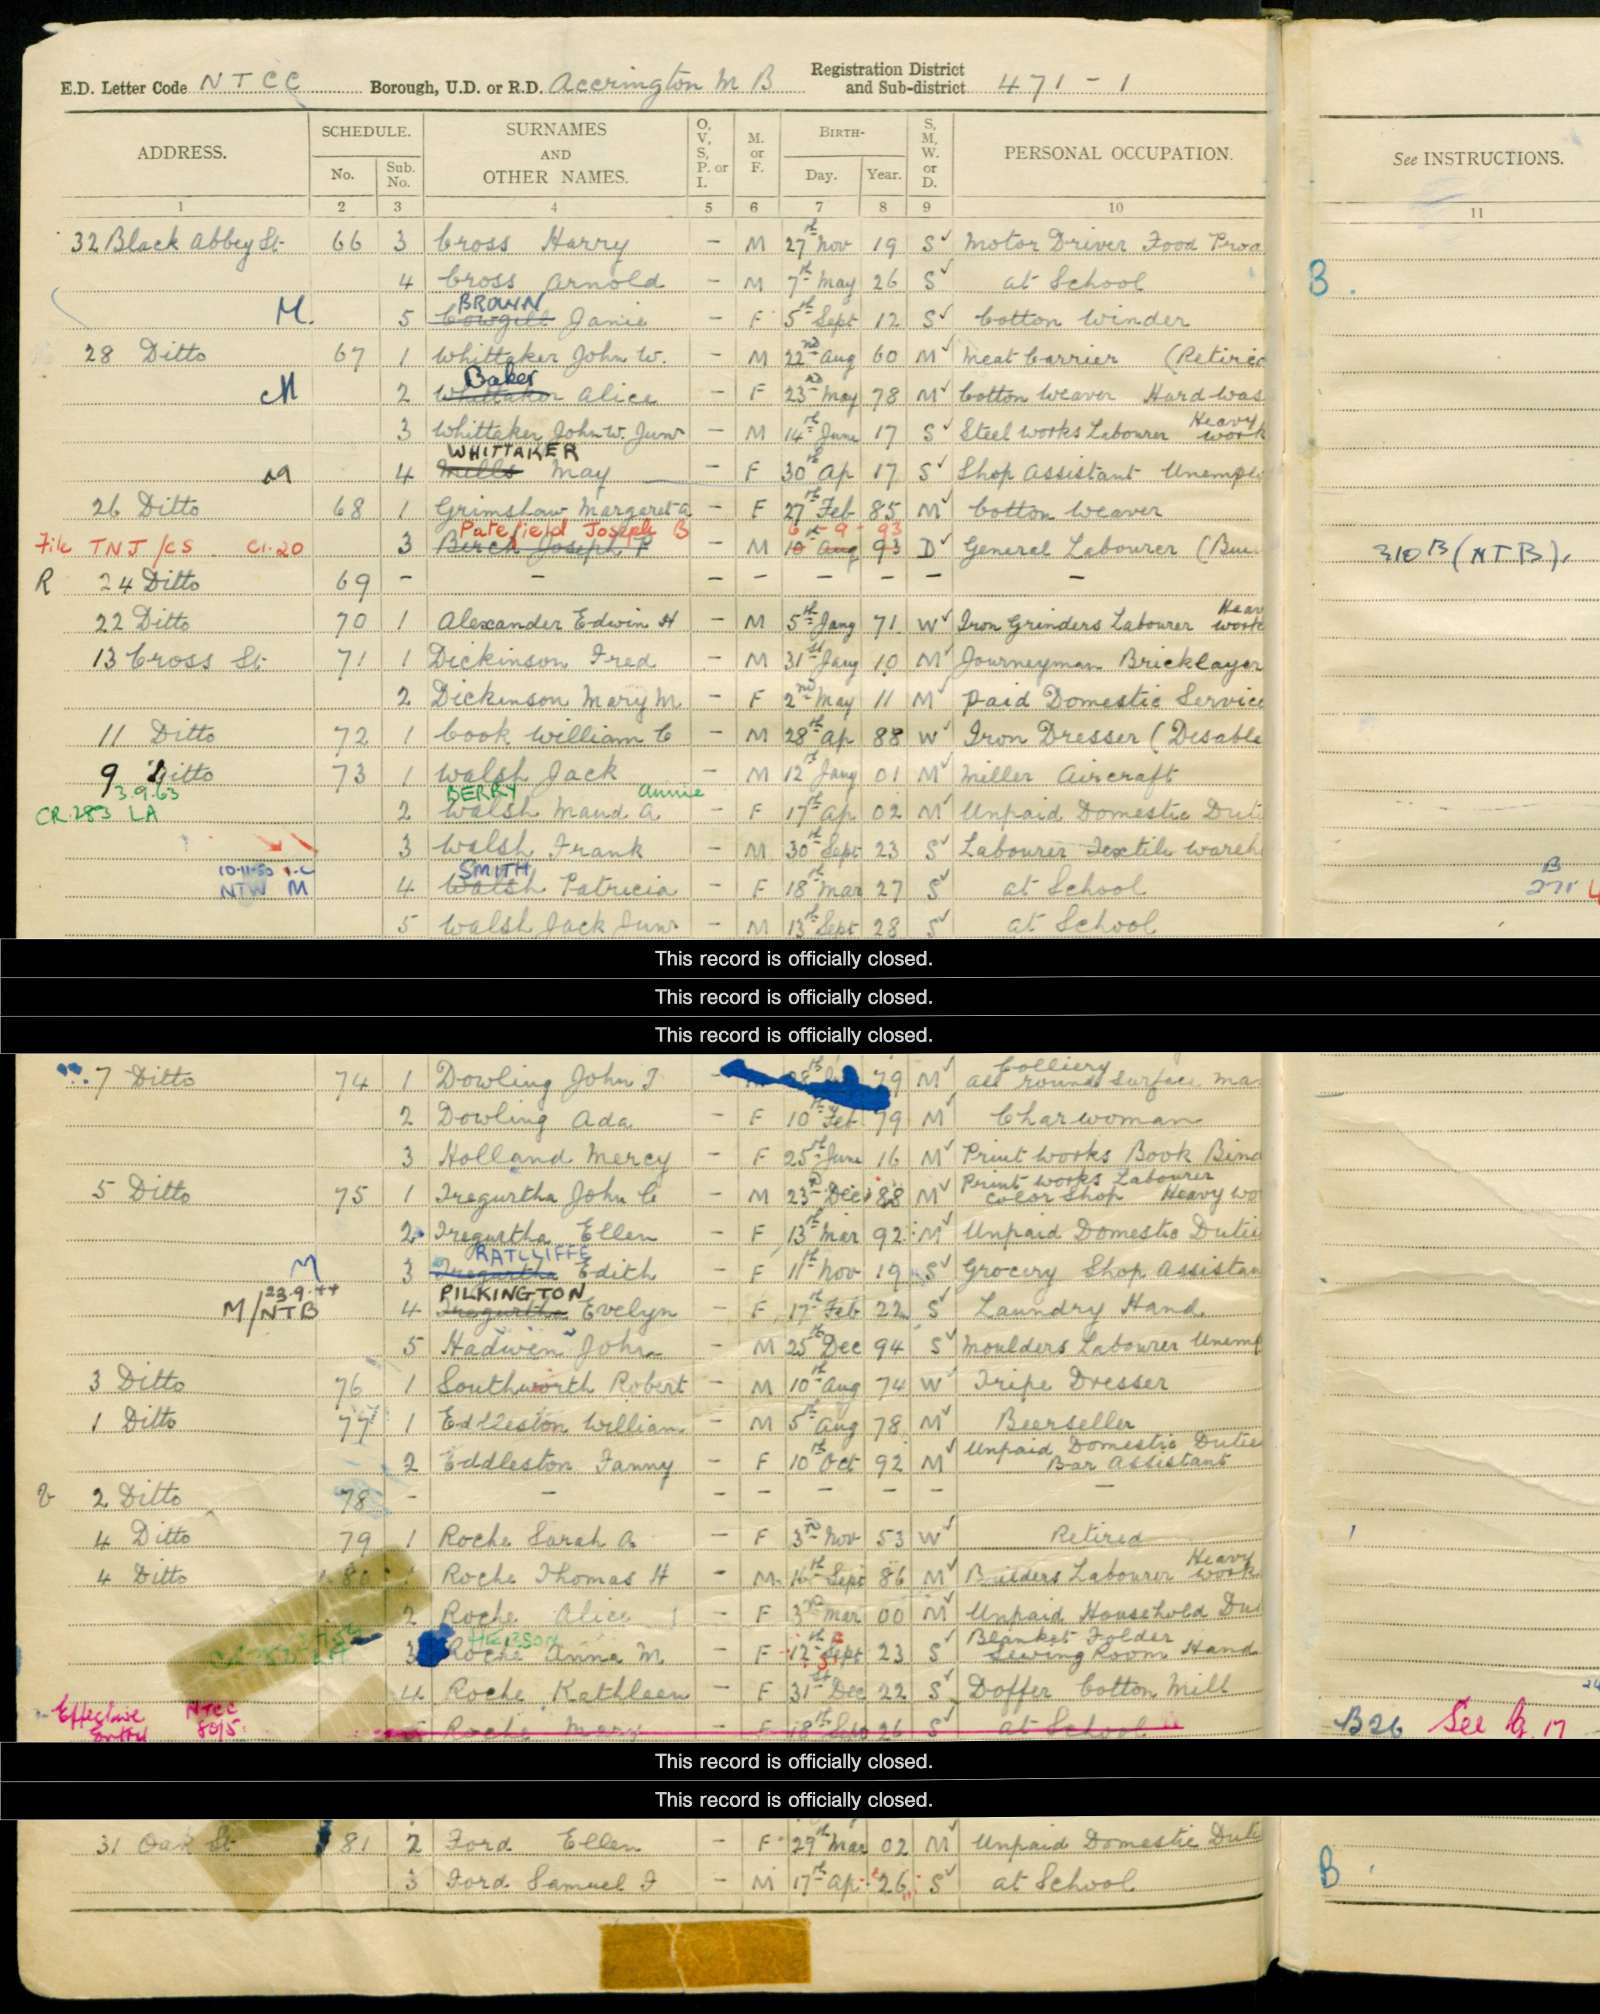 E.D. Letter Code NTCC Borough, U.D. or R.D. Accrington M B Registration District and Sub-district 471 - 1
ADDRESS. SCHEDULE. No. Sub. No. SURNAMES AND OTHER NAMES. O, V, S, P. or I. M. or F. BIRTH- Day. Year. S, M, W. or D. PERSONAL OCCUPATION. See INSTRUCTIONS.
1 2 3 4 5 6 7 8 9 10 11
32 Black Abbey St 66 3 Cross Harry - M 27th Nov 19 S Motor Driver Food
4 Cross Arnold - M 7th May 26 S at School B.
BROWN
M. 5 Cowgill Janie - F 5th Sept 12 S Cotton Winder
28 Ditto 67 1 Whittaker John W. - M 22nd Aug 60 M Meat Carrier (Retired
Baker
M 2 Whittaker Alice - F 23rd May 78 M Cotton Weaver Hard was
3 Whittaker John W. Junr - M 14th June 17 S Steel Works Labourer Heavy Work
WHITTAKER
M 4 Mills May - F 30th Ap 17 S Shop Assistant Unempl
26 Ditto 68 1 Grimshaw Margaret A - F 27th Feb 85 M Cotton Weaver
Patefield Joseph B 6th - 9 - 93
File TNJ/CS Cl. 20 3 Birch Joseph P - M 10 Aug 93 D General Labourer ( 310B (NTB).
R 24 Ditto 69 - - - - - - - -
22 Ditto 70 1 Alexander Edwin H - M 5th Jany 71 W Iron Grinders Labourer Heavy Work
13 Cross St 71 1 Dickinson Fred - M 31st Jany 10 M Journeyman Bricklayer
2 Dickinson Mary M. - F 2nd May 11 M Paid Domestic Service
11 Ditto 72 1 Cook William C - M 28th Ap 88 W Iron Dresser (Disable
9 Ditto 73 1 Walsh Jack - M 12th Jany 01 M Miller Aircraft
3.9.63 BERRY Annie
CR.283 LA 2 Walsh Maud A - F 17th Ap 02 M Unpaid Domestic Duti
3 Walsh Frank - M 30th Sept 23 S Labourer Textile Wareh
10-11-50 SMITH B
NTW M 4 Walsh Patricia - F 18th Mar 27 S at School 271
5 Walsh Jack Junr - M 13th Sept 28 S at School
This record is officially closed.
This record is officially closed.
This record is officially closed.
Colliery
7 Ditto 74 1 Dowling John T 79 M all round Surface Ma
2 Dowling Ada - F 10th Feb 79 M Charwoman
3 Holland Mercy - F 25th June 16 M Print Works Book Bind
5 Ditto 75 1 Tregurtha John C - M 23rd Dec 88 M Print Works Labourer Color Shop Heavy Wo
2 Tregurtha Ellen - F 13th Mar 92 M Unpaid Domestic Dutie
RATCLIFFE
M 3 Tregurtha Edith - F 11th Nov 19 S Grocery Shop Assistan
23.9.44 PILKINGTON
M/NTB 4 Tregurtha Evelyn - F 17th Feb 22 S Laundry Hand
5 Hadwen John - M 25th Dec 94 S Moulders Labourer Unemp
3 Ditto 76 1 Southworth Robert - M 10th Aug 74 W Tripe Dresser
1 Ditto 77 1 Eddleston William - M 5th Aug 78 M Beerseller
2 Eddleston Fanny - F 10th Oct 92 M Unpaid Domestic Dutie Bar Assistant
2 Ditto 78 - - - - - - - -
4 Ditto 79 1 Roche Sarah A - F 3rd Nov 53 W Retired
4 Ditto 80 1 Roche Thomas H - M 16th Sept 86 M Builders Labourer Heavy Work
2 Roche Alice - F 3rd Mar 00 M Unpaid Household Du
3 Roche Anna M - F 12th Sept 23 S Blanket Folder Sewing Room Hand
4 Roche Kathleen - F 31st Dec 22 S Doffer Cotton Mill
Effective Entry NTCC 80/5 5 Roche Mary - F 18th Sep 26 S at School B26 See Pg. 17
This record is officially closed.
This record is officially closed.
31 Oak St 81 2 Ford Ellen - F 29th Mar 02 M Unpaid Domestic Duti
3 Ford Samuel F - M 17th Ap 26 S at School B